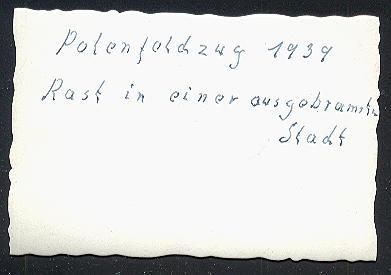 Polenfeldzug 1939
Rast in einer ausgebrannten
Stadt